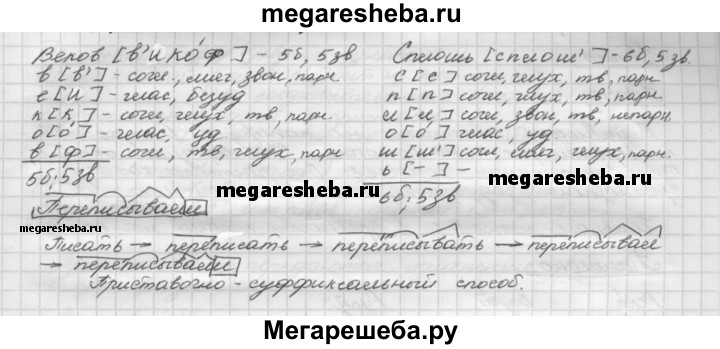 megaresheba.ru
Веков [в'ико́ф] - 5б, 5зв
в [в'] - согл., мягк, звон, парн.
е [и] - глас, безуд
к [к] - согл, глух, тв, парн.
о [о́] - глас, уд.
в [ф] - согл, тв, глух, парн
5б; 5зв
Сплошь [сплош'] - 6б, 5зв.
с [с] согл, глух, тв, парн
п [п] согл, глух, тв, парн.
л [л] согл, звон, тв, непарн.
о [о́] глас, уд.
ш [ш'] согл, мягк, глух, парн.
ь [-] -
6б; 5зв
megaresheba.ru
megaresheba.ru
Переписываем
megaresheba.ru
Писать → переписать → переписывать → переписываем
→ переписываем
Приставочно - суффиксальный способ.
Мегарешеба.ру